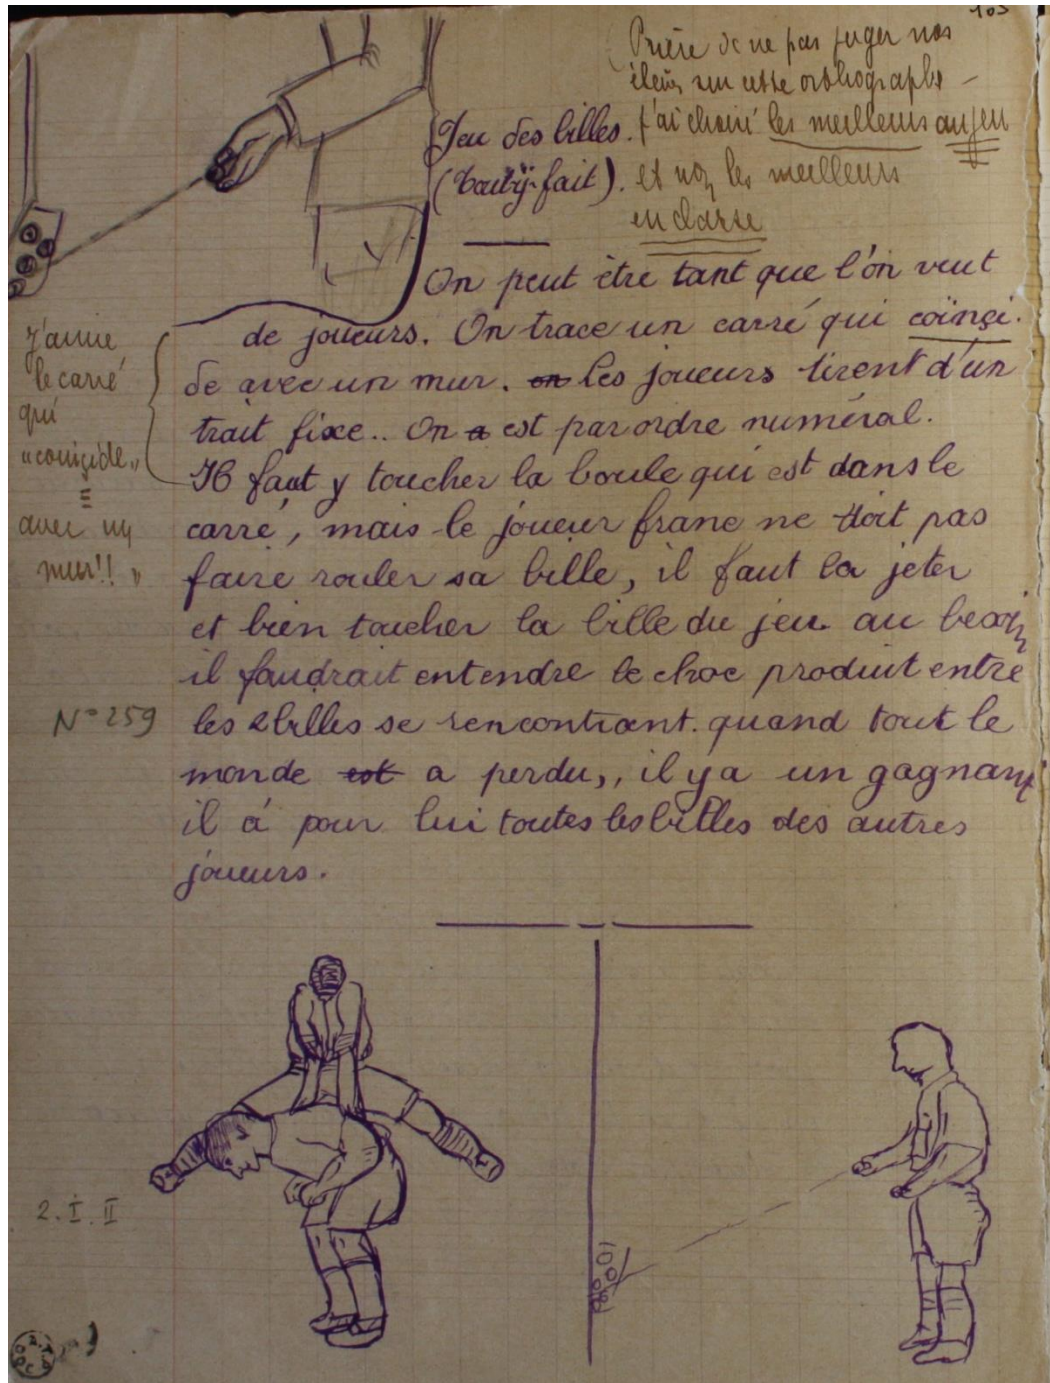 103
Prière de ne pas juger nos
élèves sur cette orthographe –
j'ai choisi les meilleurs au jeu
et non les meilleurs
en classe
Jeu des billes.
(touty-fait).
On peut être tant que l'on veut
de joueurs. On trace un carré qui coïnçi-
de avec un mur. on les joueurs tirent d'un
trait fixe.. On a est par ordre numéral.
Il faut y toucher la boule qui est dans le
carré, mais le joueur franc ne doit pas
faire rouler sa bille, il faut la jeter
et bien toucher la bille du jeu au besoin
il faudrait entendre le choc produit entre
les 2 billes se rencontrant. quand tout le
monde est a perdu,, il y a un gagnant
il á pour lui toutes les billes des autres
joueurs.
J'aime
le carré
qui
"coinçide"
avec un
mur!! "
N° 259
2. I. II